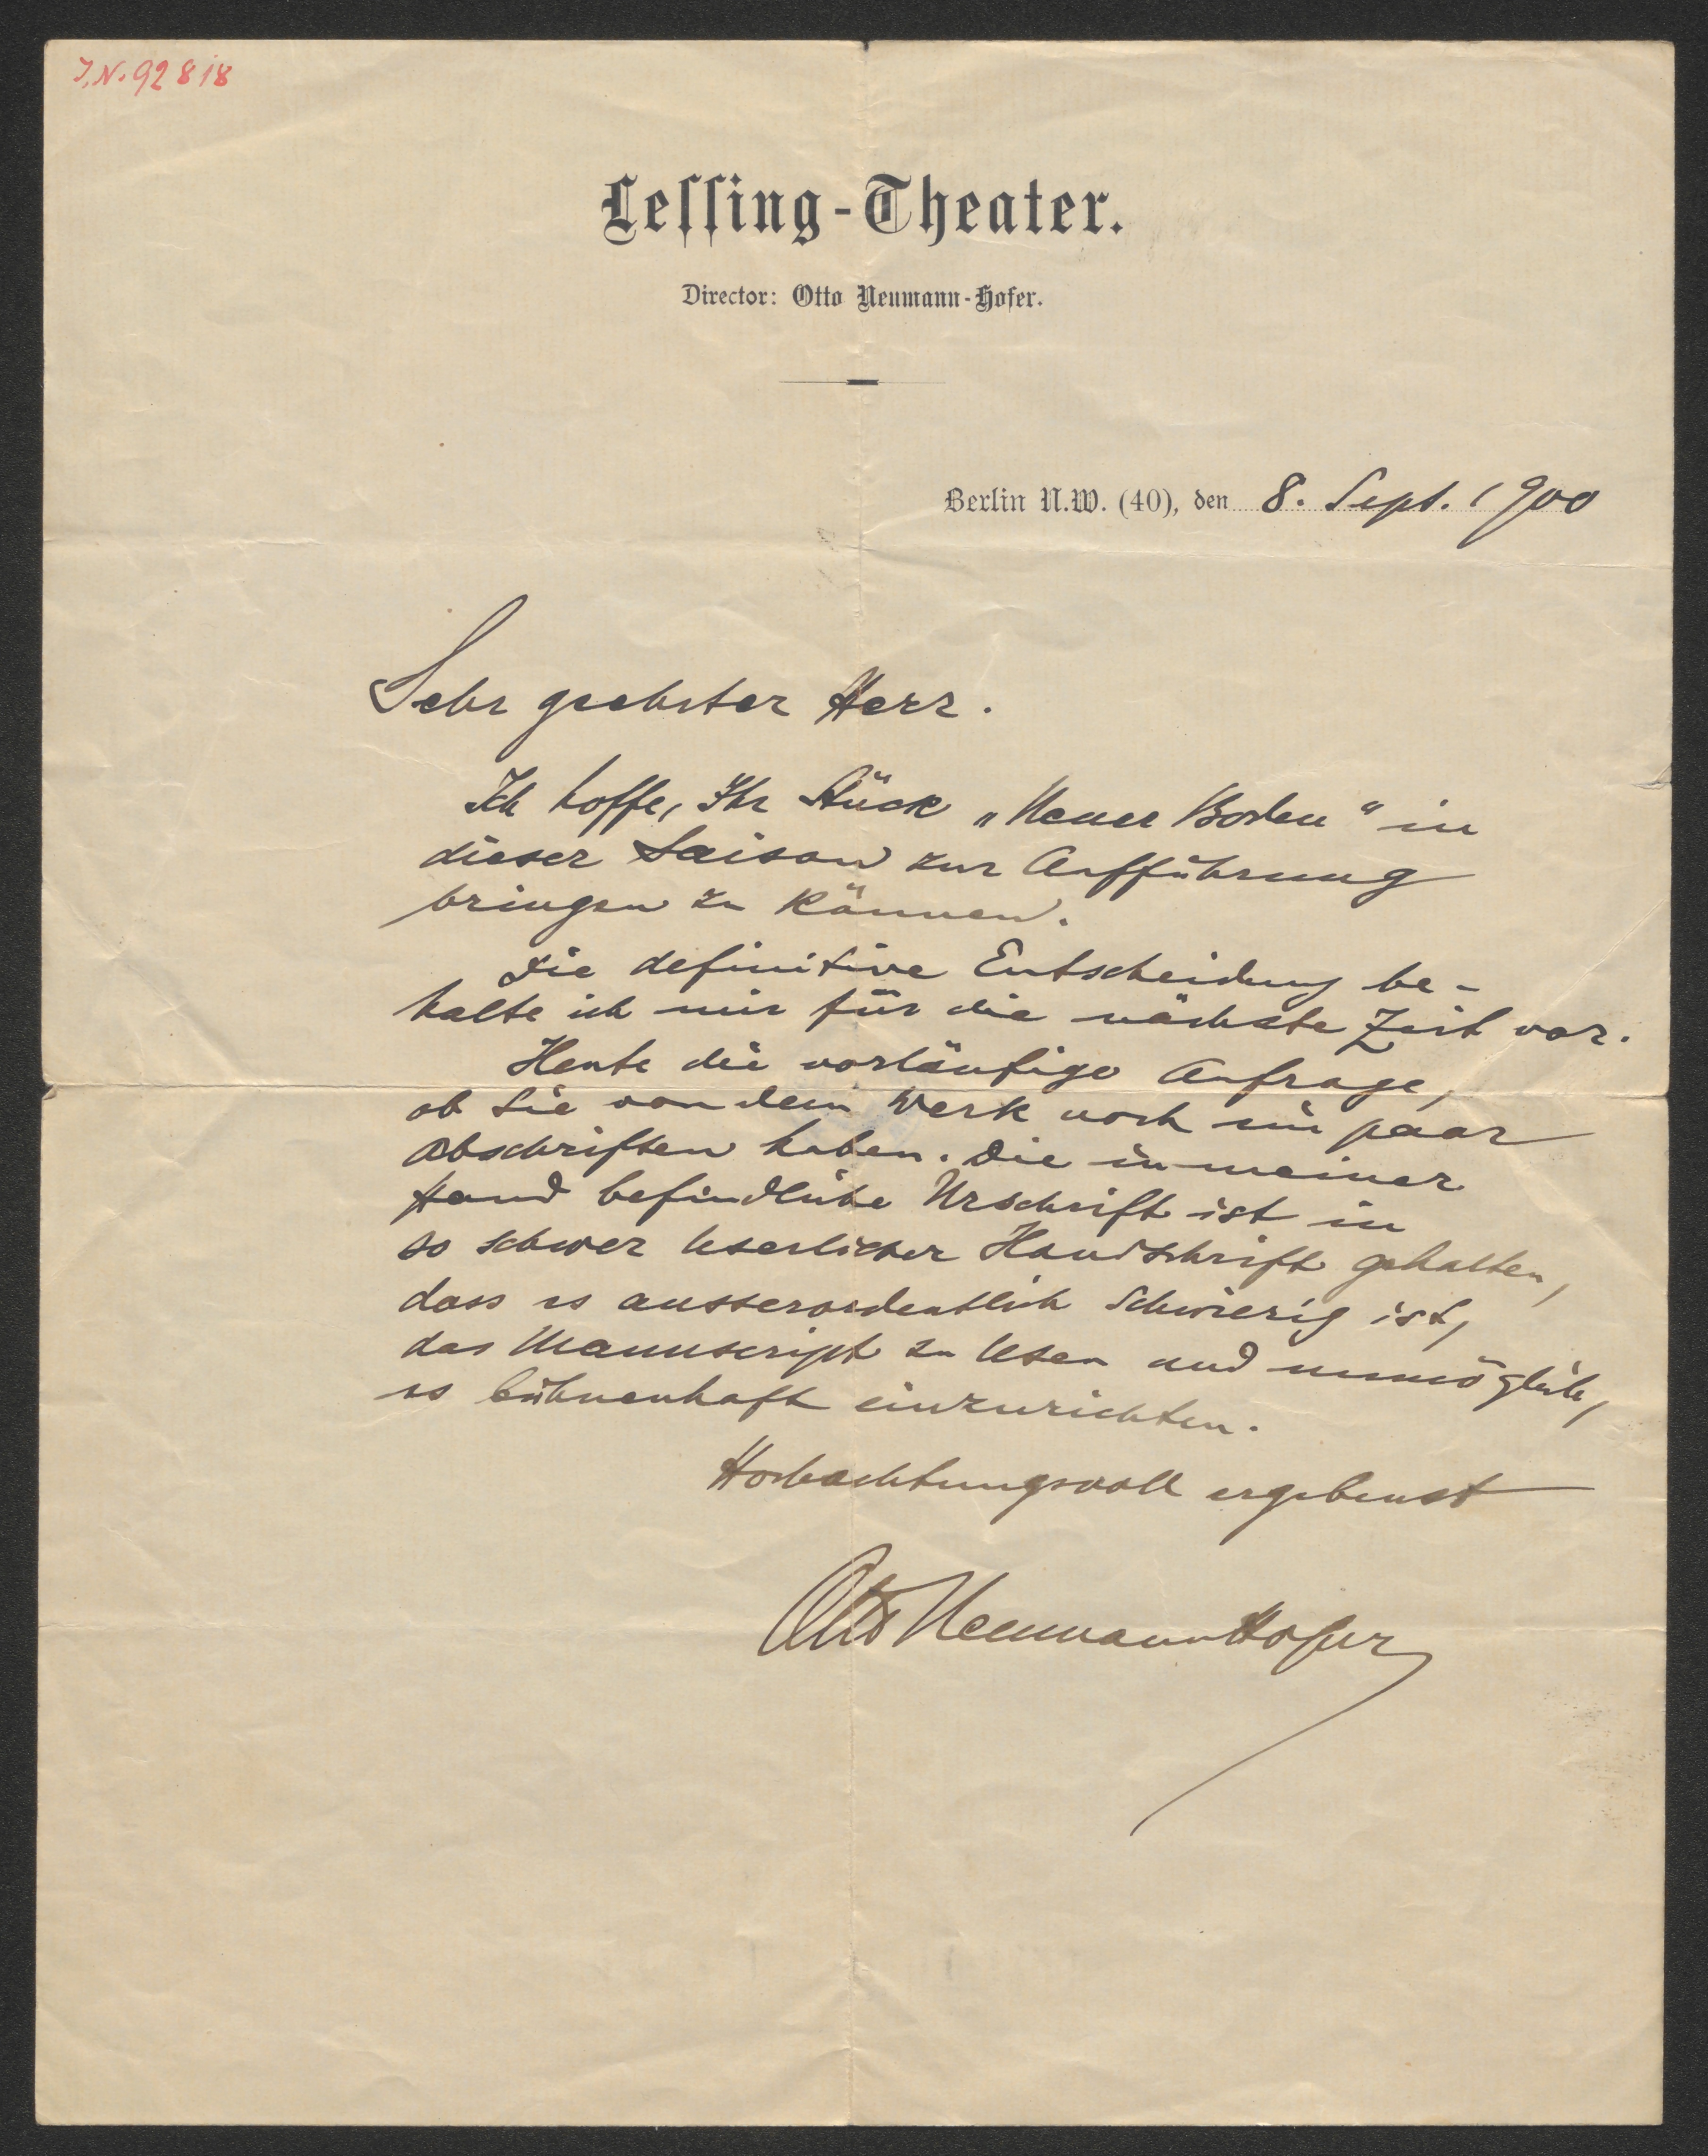 J.N. 92818
Lessing-Theater.
Director: Otto Neumann-Hofer.
Berlin N.W. (40), den 8. Sept. 1900
Sehr geehrter Herr.
Ich hoffe, Ihr Stück „Neuer Boden“ in
dieser Saison zur Aufführung
bringen zu können.
Die definitive Entscheidung be-
halte ich mir für die nächste Zeit vor.
Heute die vorläufige Anfrage,
ob Sie von dem Werk noch ein paar
Abschriften haben. Die in meiner
Hand befindliche Urschrift ist in
so schwer leserlicher Handschrift gehalten,
dass es ausserordentlich schwierig ist,
das Manuscript zu lesen und unmöglich,
es bühnenhaft einzurichten.
Hochachtungsvoll ergebenst
Otto Neumann Hofer